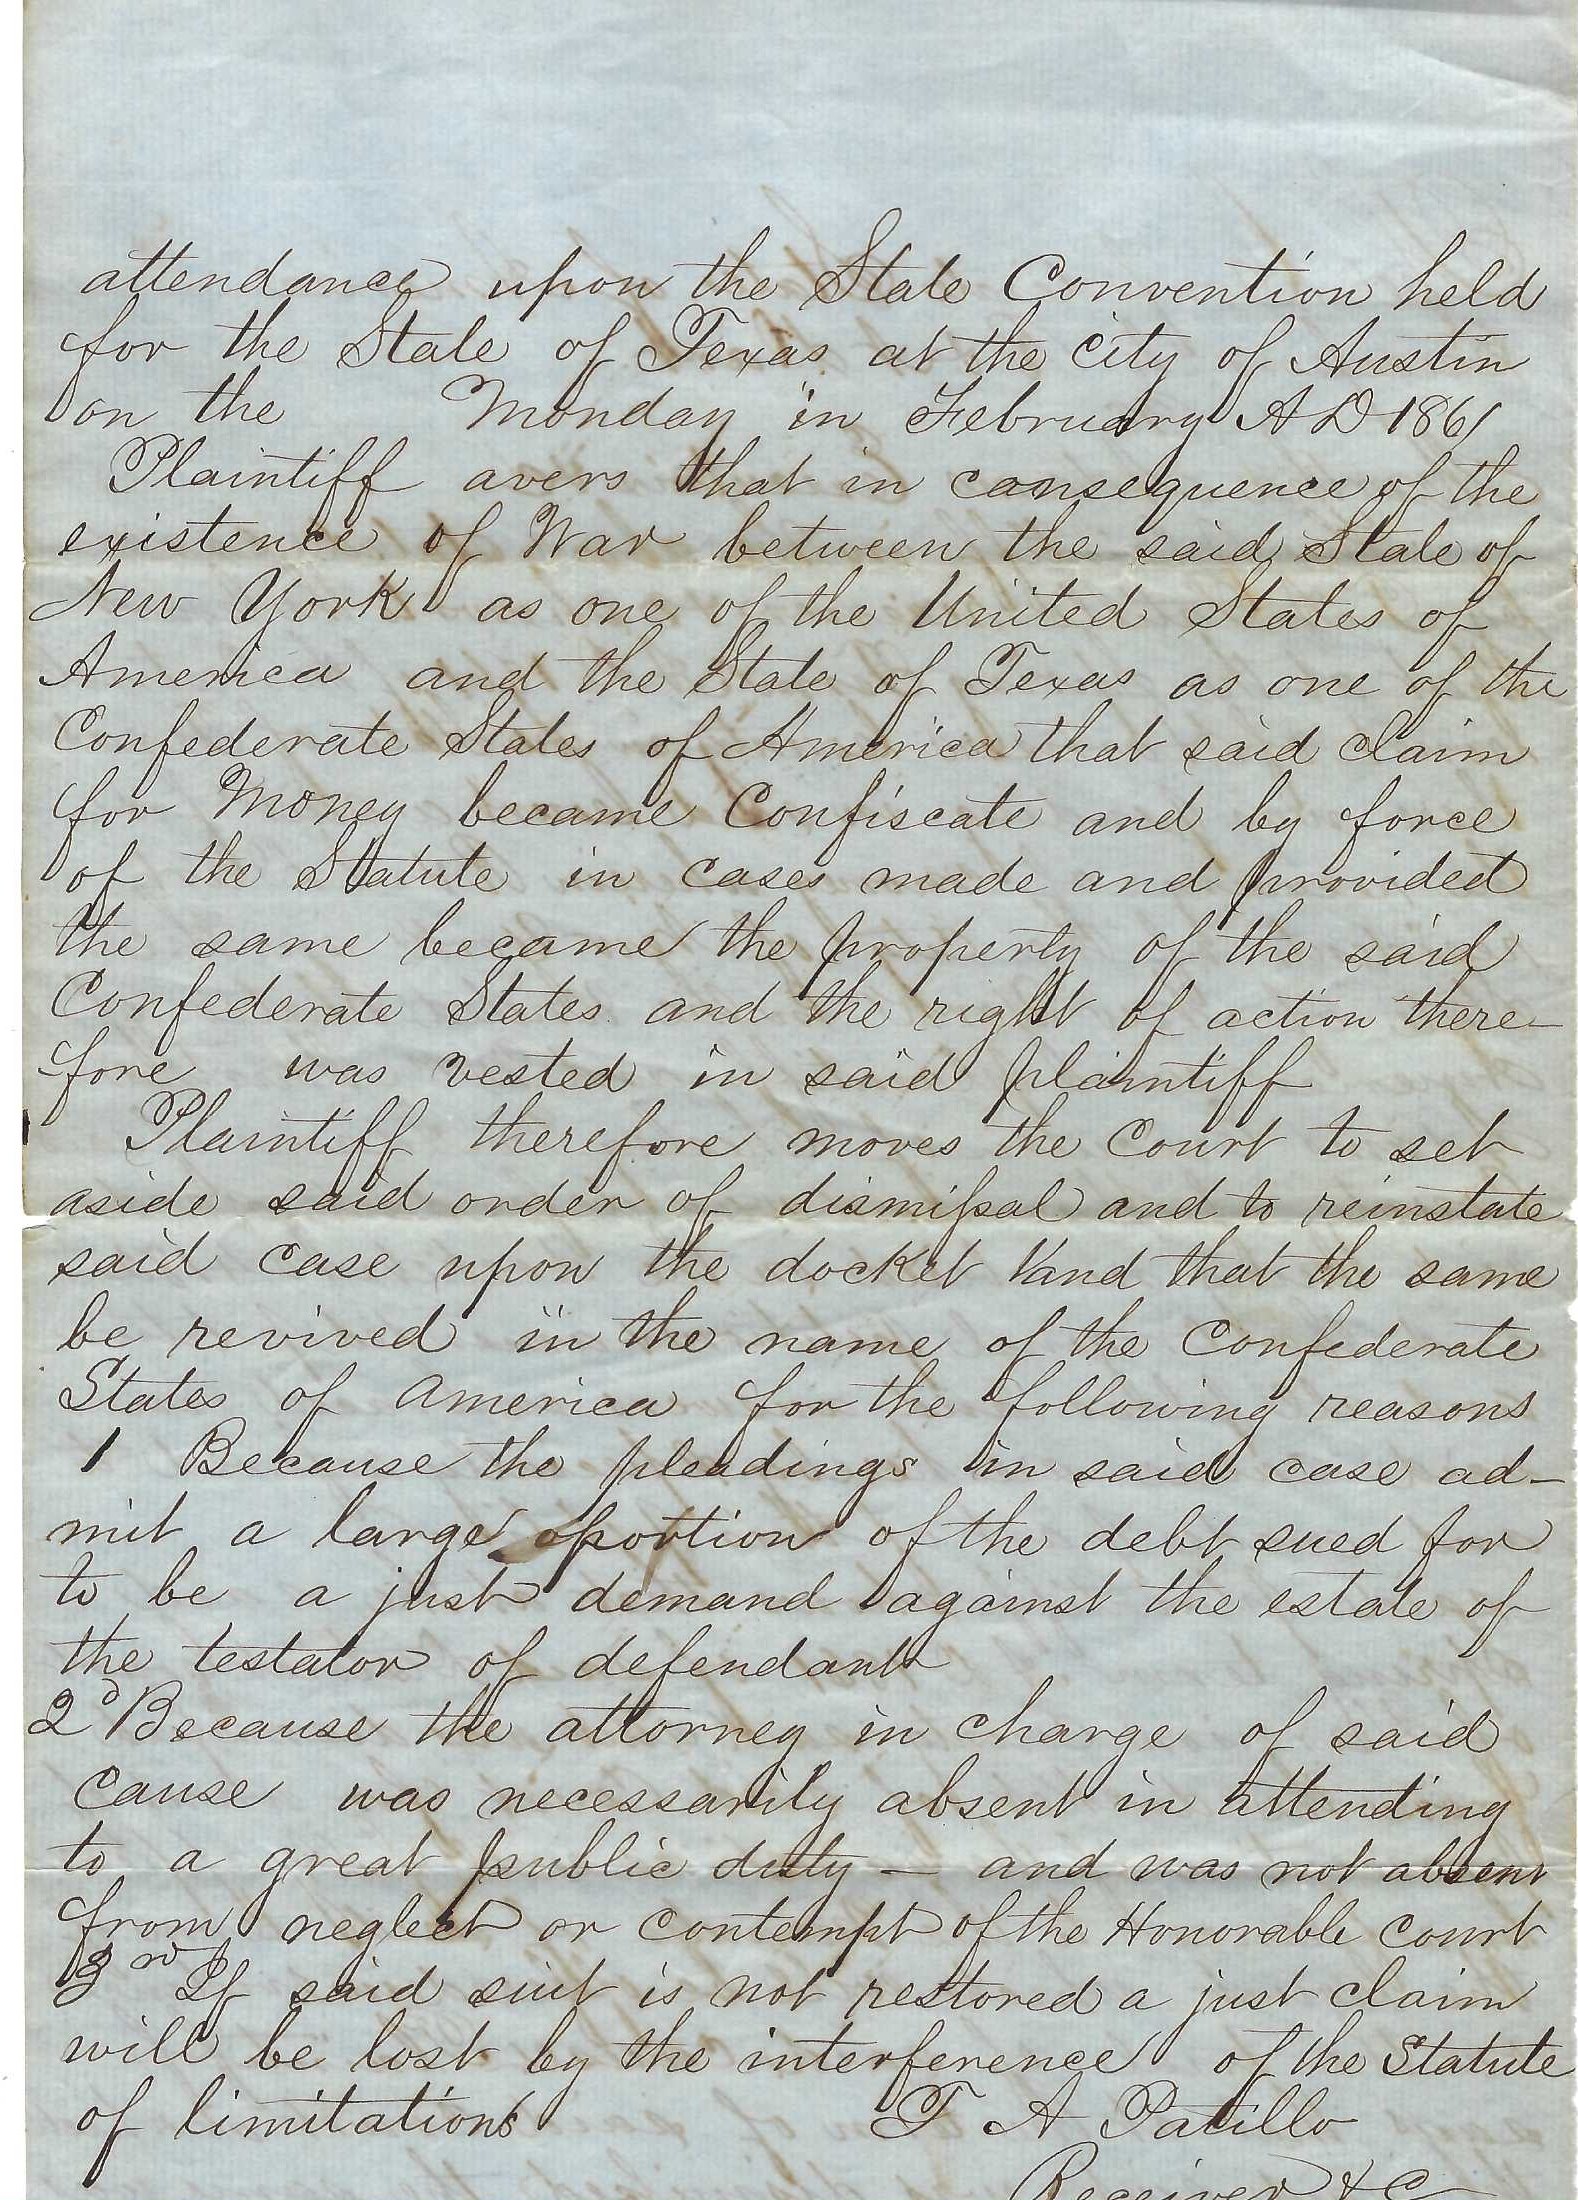 attendance upon the State Convention held
for the State of Texas at the city of Austin
on the Monday in February A D 1861
Plaintiff avers that in consequence of the
existence of War between the said State of
New York as one of the United States of
America and the State of Texas as one of the
Confederate States of America that said claim
for Money became Confiscate and by force
of the Statute in cases made and provided
the same became the property of the said
Confederate States and the right of action there-
fore was vested in said plaintiff
Plaintiff therefore moves the Court to set
aside said order of dismissal and to reinstate
said case upon the docket and that the same
be revived in the name of the Confederate
States of America for the following reasons
1 Because the pleadings in said case ad-
mit a large portion of the debt sued for
to be a just demand against the estate of
the testator of defendant
2d Because the attorney in charge of said
cause was necessarily absent in attending
to a great public duty — and was not absent
from neglect or contempt of the Honorable Court
3rd If said suit is not restored a just claim
will be lost by the interference of the Statute
of limitations T A Patillo
Receiver &C